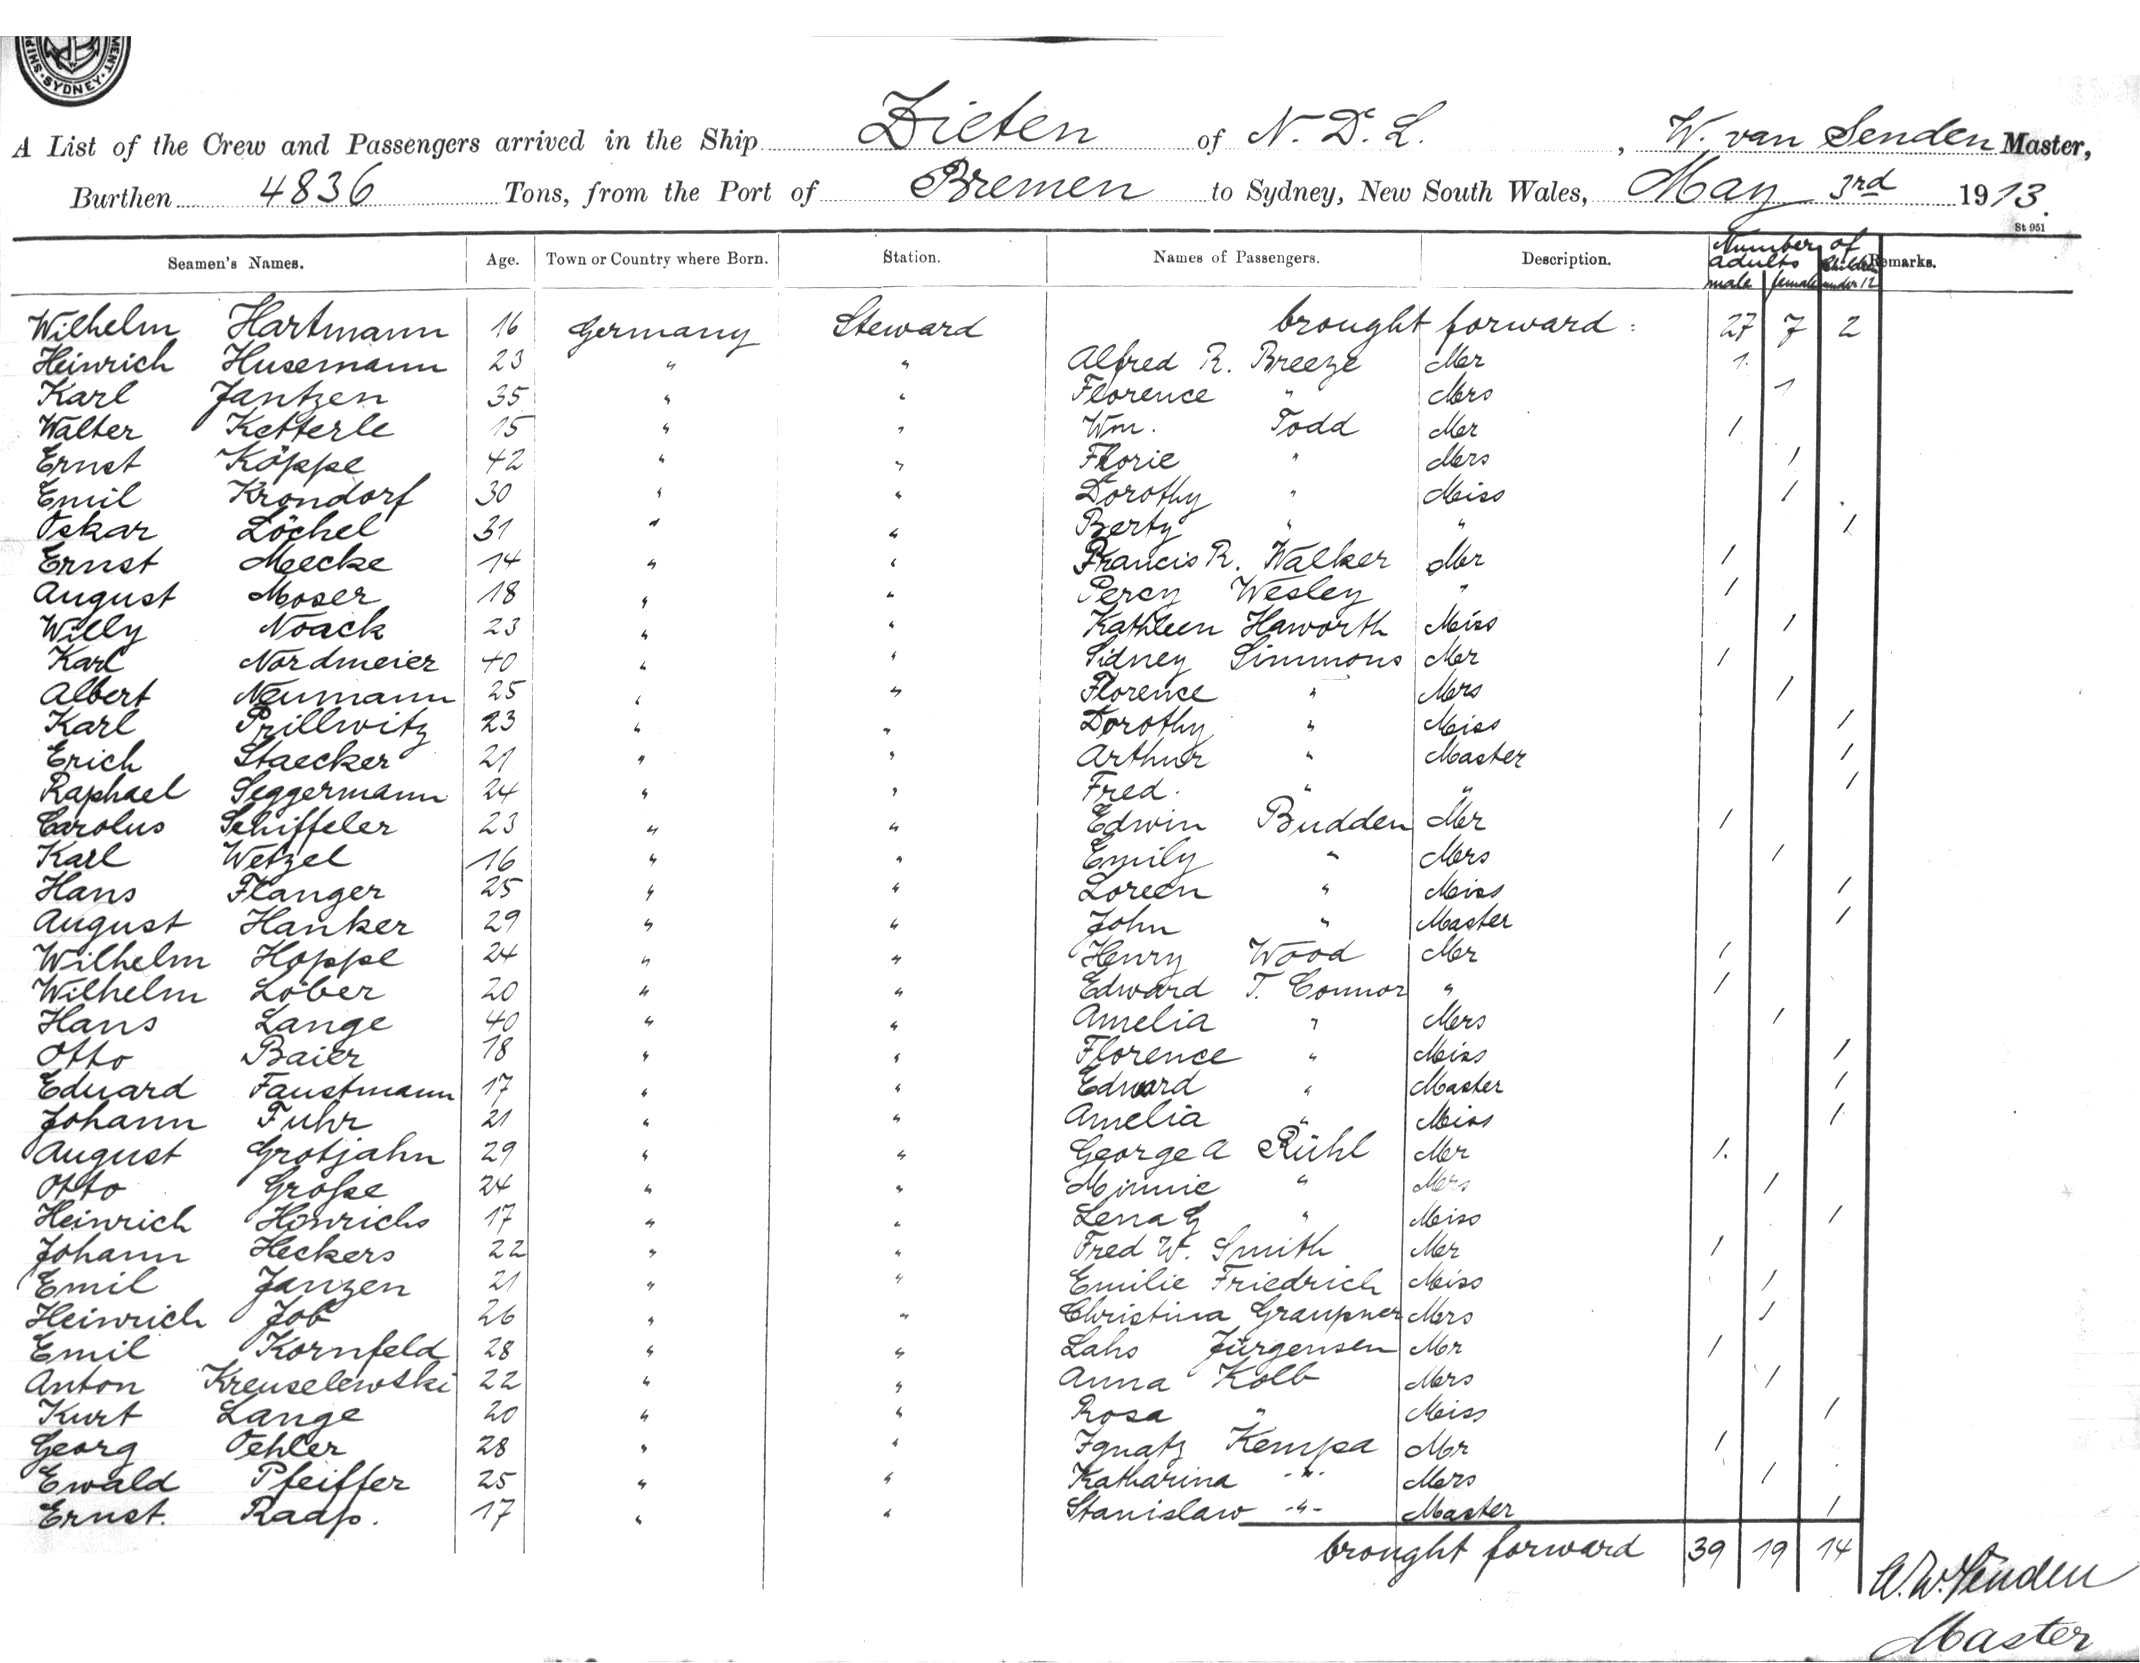 SHIP MENT SYDNEY
A List of the Crew and Passengers arrived in the Ship Zieten of N. D. L. , W. van Senden Master,
Burthen 4836 Tons, from the Port of Bremen to Sydney, New South Wales, May 3rd 1913.
St 951
Seamen's Names. Age. Town or Country where Born. Station. Names of Passengers. Description. Number of adults male female children under 12 Remarks.
Wilhelm Hartmann 16 Germany Steward brought forward : 27 7 2
Heinrich Husemann 23 " " Alfred R. Breeze Mr 1
Karl Jantzen 35 " " Florence " Mrs 1
Walter Ketterle 15 " " Wm. Todd Mr 1
Ernst Köppe 42 " " Florie " Mrs 1
Emil Krondorf 30 " " Dorothy " Miss 1
Oskar Löchel 31 " " Berty " " 1
Ernst Mecke 14 " " Francis R. Walker Mr 1
August Moser 18 " " Percy Wesley " 1
Willy Noack 23 " " Kathleen Haworth Miss 1
Karl Nordmeier 40 " " Sidney Simmons Mr 1
Albert Neumann 25 " " Florence " Mrs 1
Karl Prillwitz 23 " " Dorothy " Miss 1
Erich Staecker 21 " " Arthur " Master 1
Raphael Seggermann 24 " " Fred. " " 1
Carolus Schiffeler 23 " " Edwin Budden Mr 1
Karl Wetzel 16 " " Emily " Mrs 1
Hans Flanger 25 " " Loreen " Miss 1
August Hanker 29 " " John " Master 1
Wilhelm Hoppe 24 " " Henry Wood Mr 1
Wilhelm Löber 20 " " Edward T. Connor " 1
Hans Lange 40 " " Amelia " Mrs 1
Otto Baier 18 " " Florence " Miss 1
Eduard Faustmann 17 " " Edward " Master 1
Johann Fuhr 21 " " Amelia " Miss 1
August Grotjahn 29 " " George A Rühl Mr 1.
Otto Große 24 " " Minnie " Mrs 1
Heinrich Hinrichs 17 " " Lena G " Miss 1
Johann Heckers 22 " " Fred W. Smith Mr 1
Emil Janzen 21 " " Emilie Friedrich Miss 1
Heinrich Job 26 " " Christina Graupner Mrs 1
Emil Kornfeld 28 " " Lahs Jürgensen Mr 1
Anton Kreuselewski 22 " " Anna Kolb Mrs 1
Kurt Lange 20 " " Rosa " Miss 1
Georg Oehler 28 " " Ignatz Kempa Mr 1
Ewald Pfeiffer 25 " " Katharina -"- Mrs 1
Ernst. 17 " " Stanislaw -"- Master 1
brought forward 39 19 14
W. Senden
Master